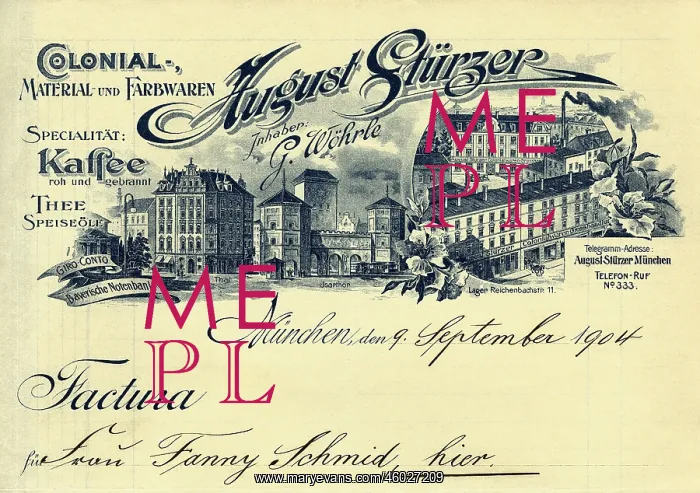 COLONIAL-,
MATERIAL- UND FARBWAREN
August Stürzer
Inhaber:
G. Wöhrle
SPECIALITÄT:
Kaffee
roh und gebrannt
THEE
SPEISEÖLE
GIRO CONTO
Bayerische Notenbank
Thal
Isarthor
Lager Reichenbachstr. 11.
Telegramm-Adresse:
August-Stürzer München
TELEFON-RUF
No 333.
ME
PL
ME
PL
München, den 9. September 1904
Factura
für Frau Fanny Schmid, hier.
www.maryevans.com/46027209